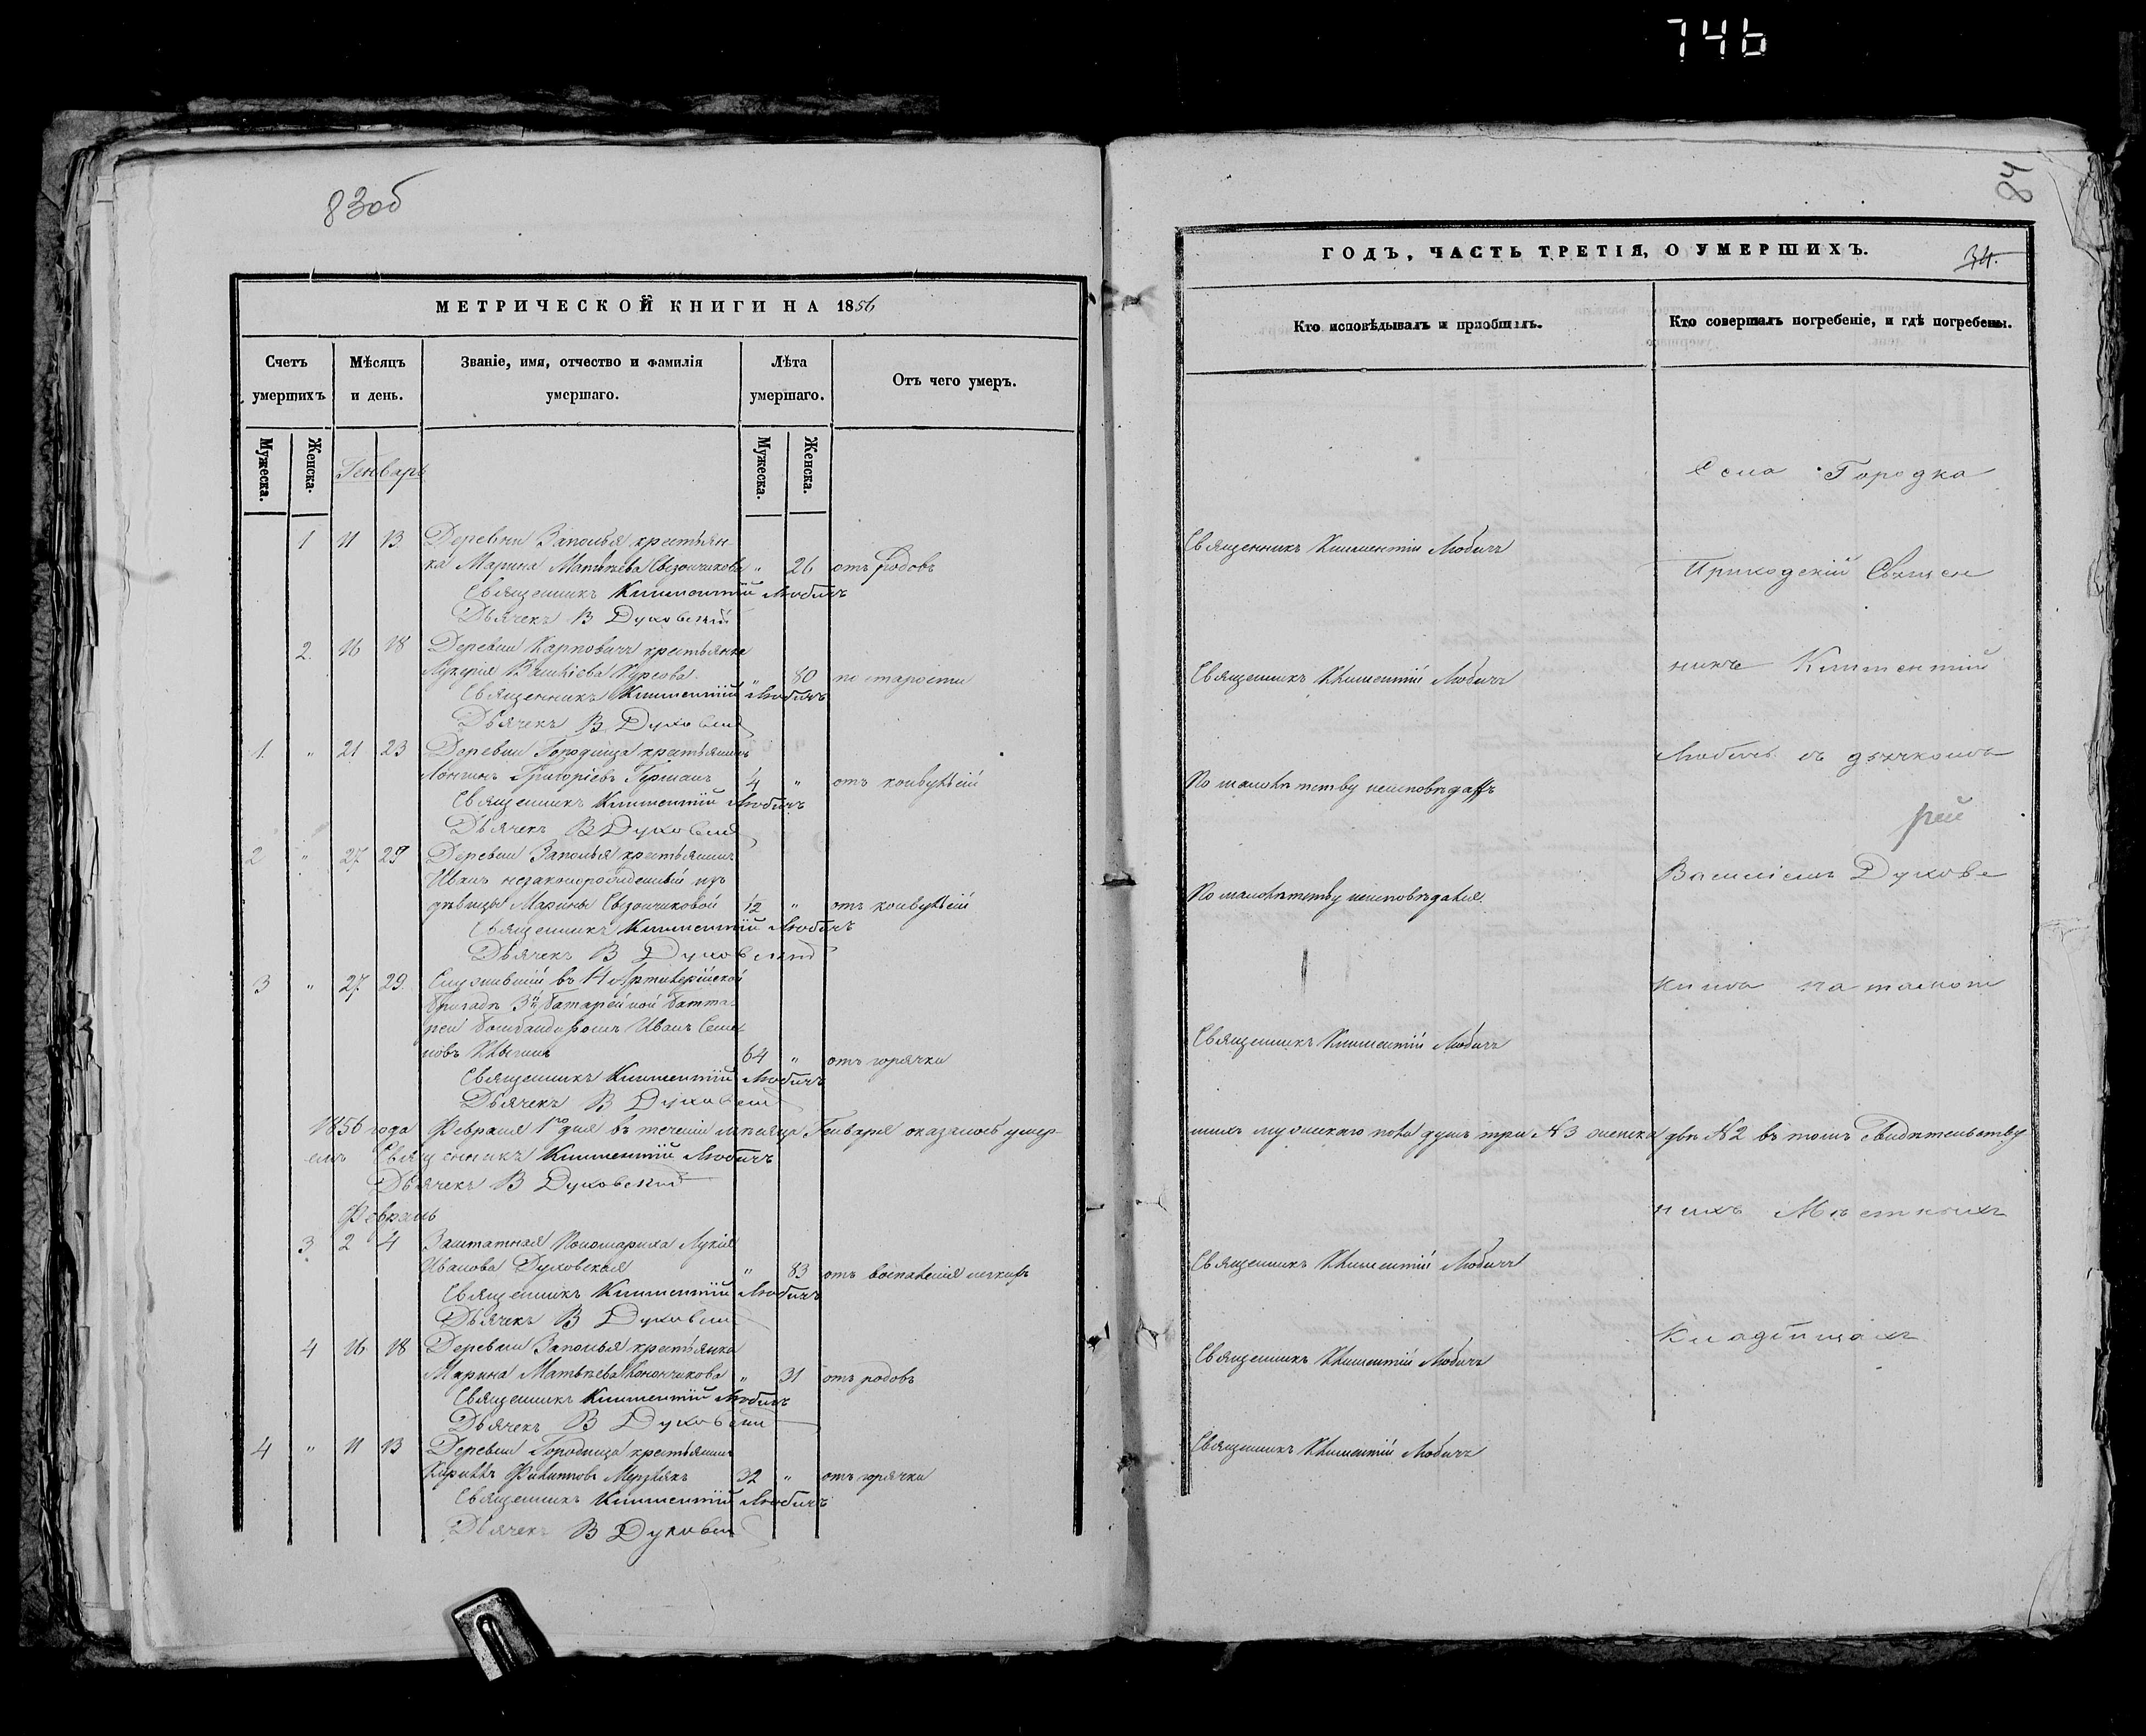 746
83об
МЕТРИЧЕСКОЙ КНИГИ НА 1856
Счетъ умершихъ
Мѣсяцъ и день.
Званіе, имя, отчество и фамилія умершаго.
Лѣта умершаго.
Отъ чего умеръ.
Мужеска.
Женска.
Мужеска.
Женска.
Генварь
1 11 13 Деревни Заполья крестьян
ка Марина Матвѣева " 26 отъ родовъ
Священникъ Климентій Любичъ
Дьячекъ В Духовскій
2. 16 18 Деревни Карповичъ крестьянка
Лукерія " 80 по старости
Священникъ Климентій Любичъ
Дьячекъ В Духовскій
1. " 21 23 Деревни Городища крестьянинъ
Лонгинъ Григорьевъ 1/4 " отъ конвульсій
Священникъ Климентій Любичъ
Дьячекъ В Духовскій
2 " 27 29 Деревни Заполья крестьянинъ
Иванъ незаконорожденный изъ
дѣвицы Марины 1/2 " отъ конвульсій
Священникъ Климентій Любичъ
Дьячекъ В Духовскій
3 " 27 29. Служившій въ 14 Артилерійской
бригадѣ 3й батарейной батта
реи бомбандиромъ Иванъ Семе
новъ 64 " отъ горячки
Священникъ Климентій Любичъ
Дьячекъ В Духовскій
1856 года Февраля 1го дня въ теченіи мѣсяца Генваря оказалось умер-
Священникъ Климентій Любичъ
Дьячекъ В Духовскій
Февраль
3 2 4 Заштатная Пономариха Лукія
Иванова Духовская " 83 отъ воспаленія легкихъ
Священникъ Климентій Любичъ
Дьячекъ В Духовскій
4 16 18 Деревни Заполья крестьянка
Марина Матвѣева Конончикова " 31 отъ родовъ
Священникъ Климентій Любичъ
Дьячекъ В Духовскій
4 " 11 13 Деревни Городища крестьянинъ
Кириллъ Филипповъ 32 " отъ горячки
Священникъ Климентій Любичъ
Дьячекъ В Духовскій
84
ГОДЪ, ЧАСТЬ ТРЕТІЯ, О УМЕРШИХЪ.
34.
Кто исповѣдывалъ и пріобщалъ.
Кто совершалъ погребеніе, и гдѣ погребены.
Села Городка
Священникъ Климентій Любичъ
Приходскій Священ
Священникъ Климентій Любичъ
никъ Климентій
Любичъ съ дьячкомъ
По малолѣтству неисповѣдан
Василіемъ Духовс
По малолѣтству неисповѣдался.
кимъ на
Священникъ Климентій Любичъ
шихъ мужескаго пола душъ три № 3 женска двѣ № 2 въ томъ свидѣтельству
нихъ Мѣстныхъ
Священникъ Климентій Любичъ
Кладбищахъ
Священникъ Климентій Любичъ
Священникъ Климентій Любичъ